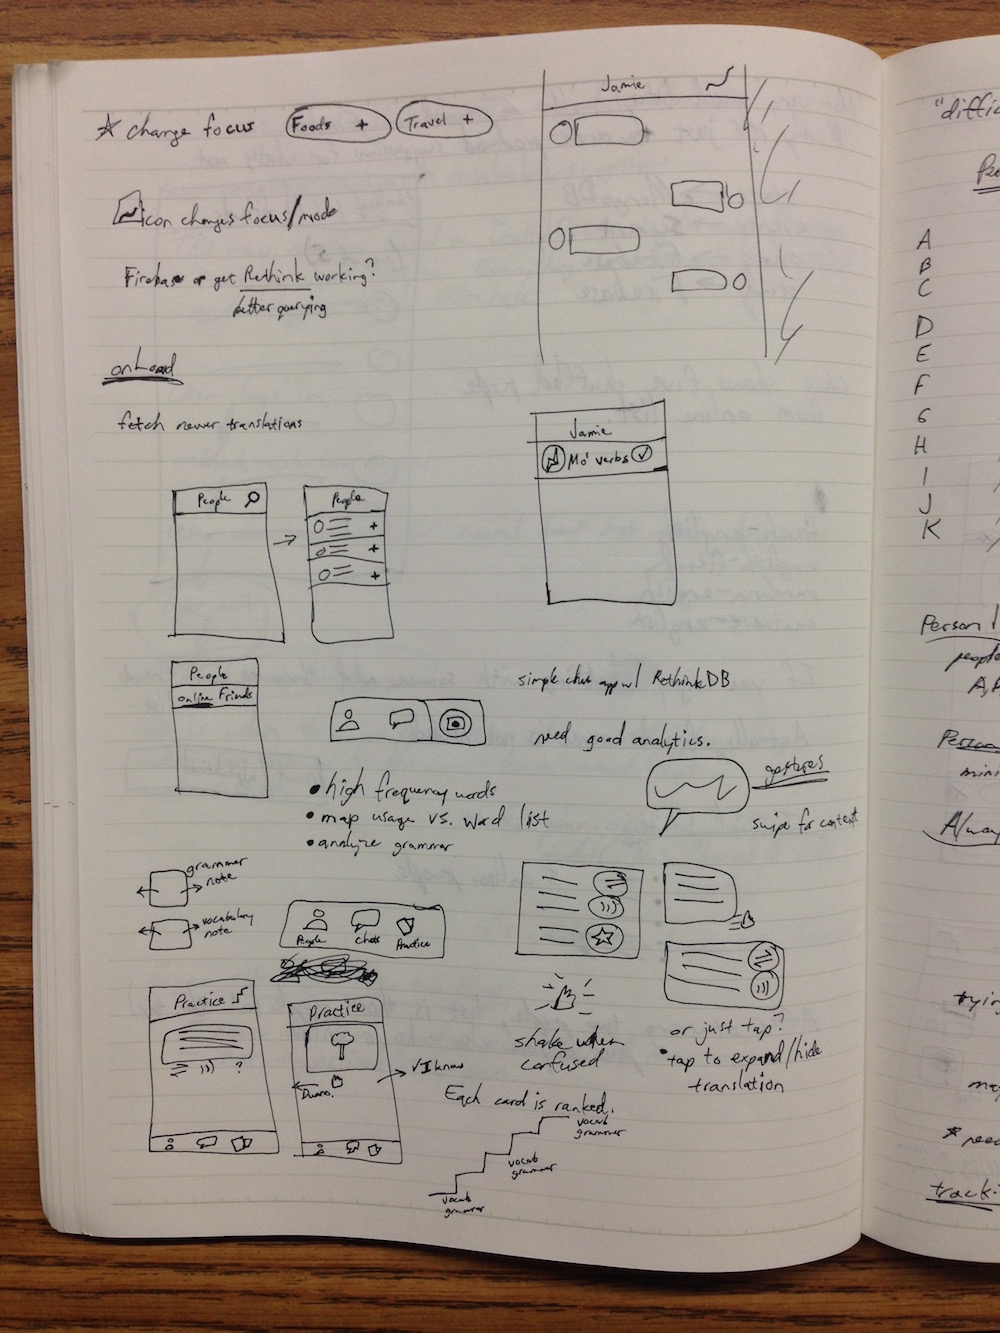 ☆ change focus
Foods +
Travel +
Jamie
icon changes focus/mode
Firebase or get Rethink working?
better querying
onLoad
fetch newer translations
Jamie
Mo' verbs
People
People
+
+
+
People
online Friends
simple chat app w/ RethinkDB
need good analytics.
• high frequency words
• map usage vs. word list
• analyze grammer
gestures
swipe for content
grammer
note
vocabulary
note
People
Chats
Practice
Practice
?
Practice
Dunno.
✓ I know
shake when
confused
or just tap?
• tap to expand/hide
translation
Each card is ranked.
vocab
grammer
vocab
grammer
vocab
grammer
"diffic
Pe
A
B
C
D
E
F
G
H
I
J
K
Person 1
people
A,
Perso
mini
Alway
trying
ma
* nee
track